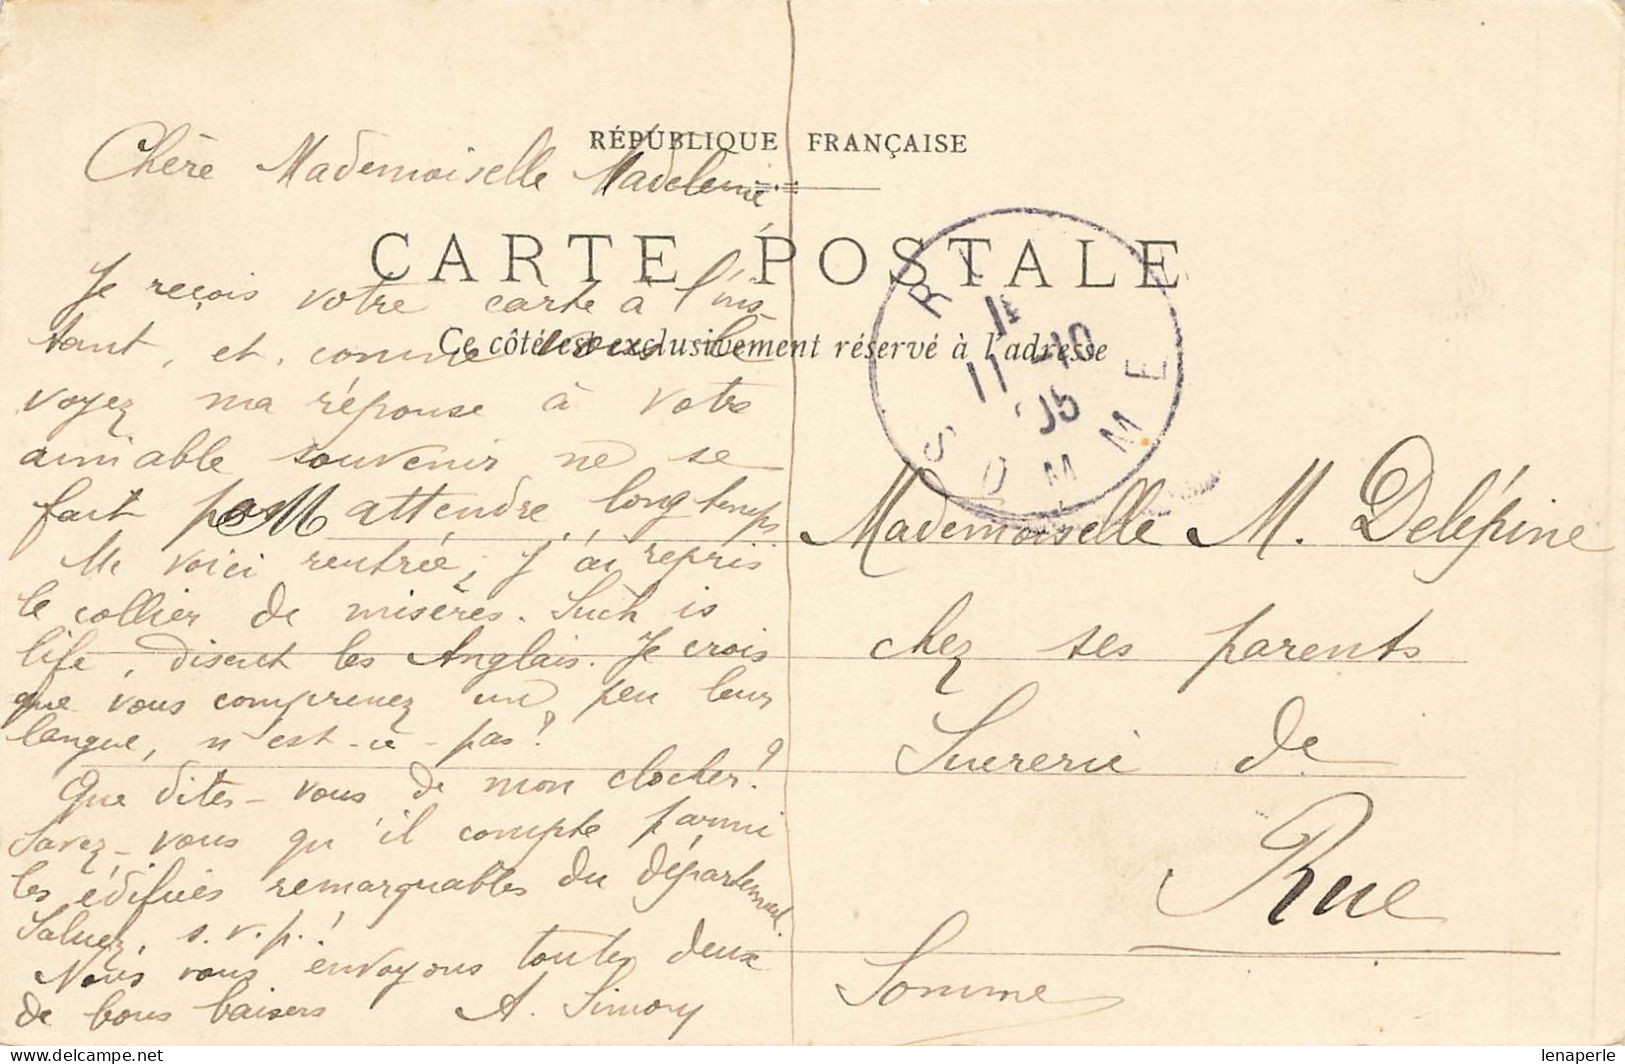 RÉPUBLIQUE FRANÇAISE
CARTE POSTALE
Ce côté est exclusivement réservé à l'adresse
Chère Mademoiselle Madeleine
Je reçois votre carte à l'ins-
tant, et, comme vous le
voyez ma réponse à votre
aimable souvenir ne se
fait pas attendre longtemps
Me voici rentrée, J'ai repris
le collier de misères. Such is
life, disent les Anglais. Je crois
que vous comprenez un peu leur
langue, n'est-ce-pas?
Que dites-vous de mon clocher?
Savez-vous qu'il compte parmi
les édifices remarquables du département.
Saluez, s.v.p.!
Nous vous envoyons toutes deux
de bons baisers A. Simory
R
11
11 -10
05
SOMME
Mademoiselle M. Delépine
chez ses parents
Sucrerie de
Rue
Somme
lenaperle